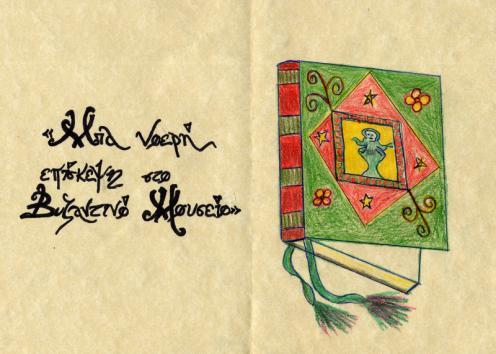 «Μια νοερή
επίσκεψη στο
Βυζαντινό Μουσείο»